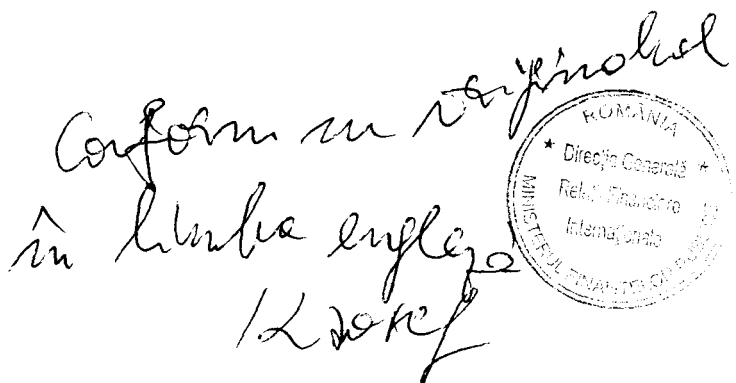 Conform cu originalul
în limba engleză
ROMÂNIA
* Direcția Generală *
Relații Financiare
Internaționale
MINISTERUL FINANȚELOR PUBLICE